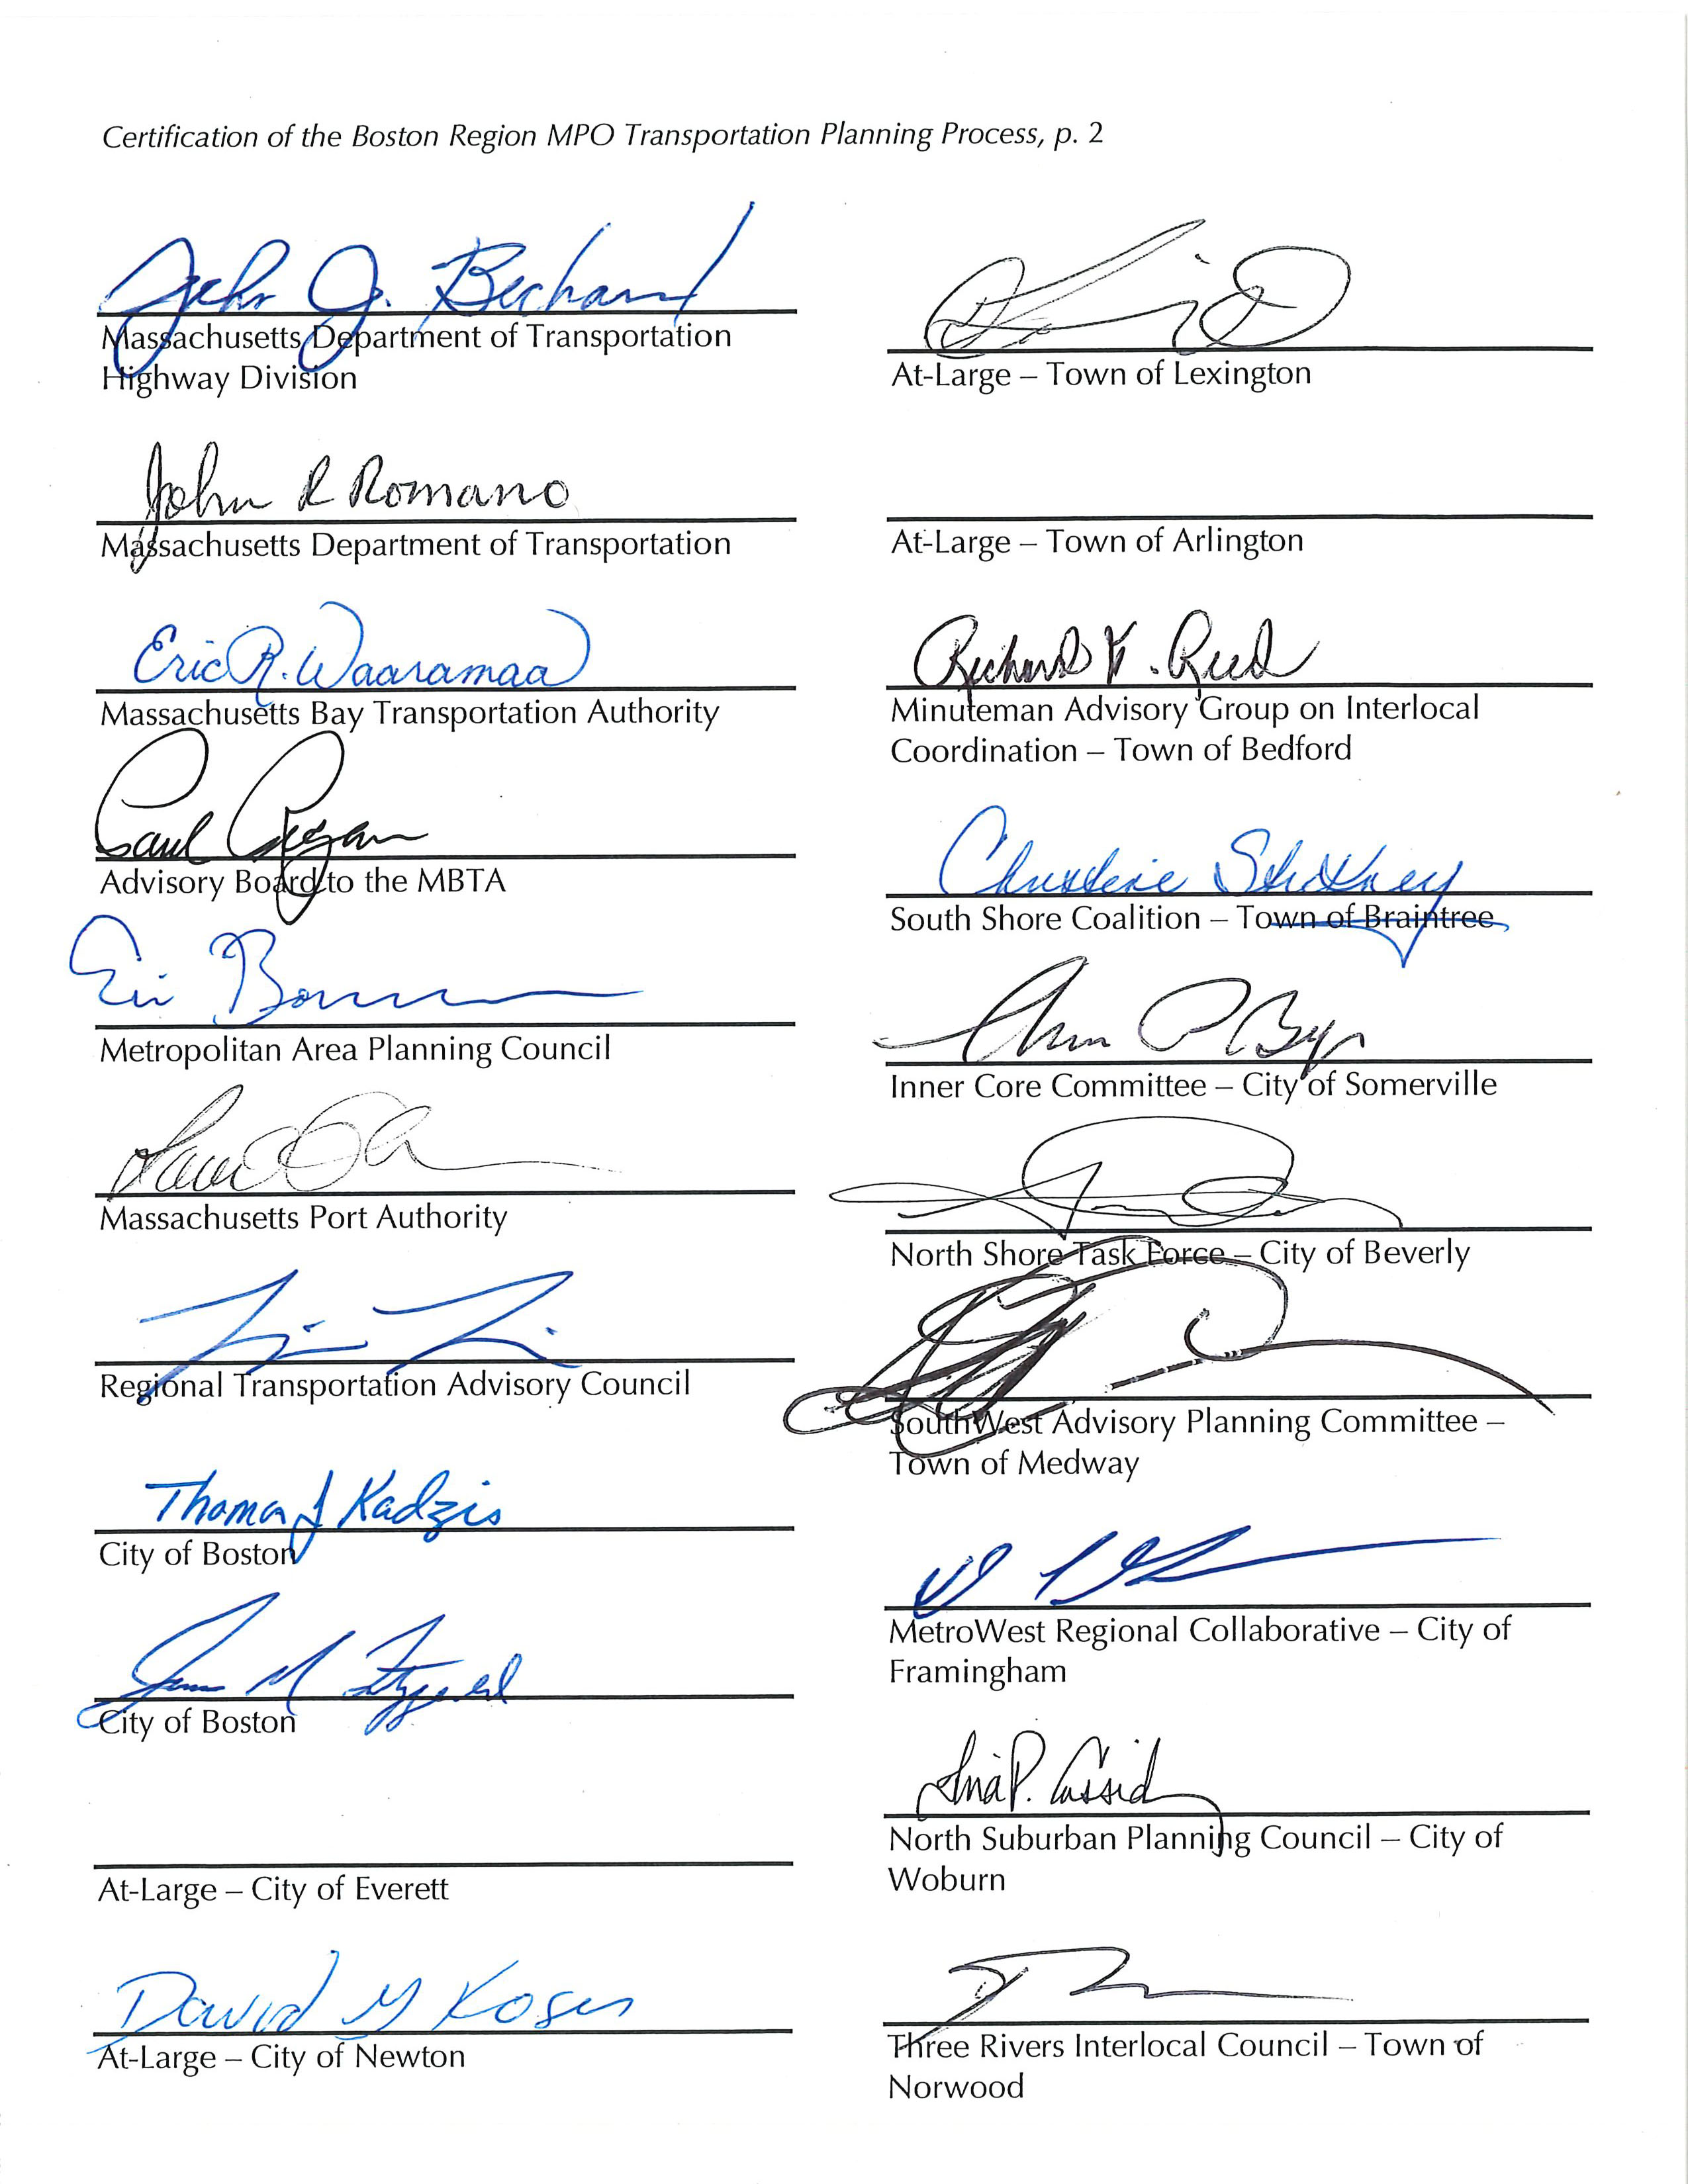 Certification of the Boston Region MPO Transportation Planning Process, p. 2
John J. Bechard
Massachusetts Department of Transportation
Highway Division
John R Romano
Massachusetts Department of Transportation
Eric R. Waaramaa
Massachusetts Bay Transportation Authority
Paul Regan
Advisory Board to the MBTA
Eric
Metropolitan Area Planning Council
Massachusetts Port Authority
Regional Transportation Advisory Council
Thomas J Kadzis
City of Boston
M Fitzgerald
City of Boston
At-Large – City of Everett
David M Koses
At-Large – City of Newton
At-Large – Town of Lexington
At-Large – Town of Arlington
Richard K. Reed
Minuteman Advisory Group on Interlocal
Coordination – Town of Bedford
Christine Stickney
South Shore Coalition – Town of Braintree
Inner Core Committee – City of Somerville
North Shore Task Force – City of Beverly
SouthWest Advisory Planning Committee –
Town of Medway
MetroWest Regional Collaborative – City of
Framingham
Tina P. Cassidy
North Suburban Planning Council – City of
Woburn
Three Rivers Interlocal Council – Town of
Norwood